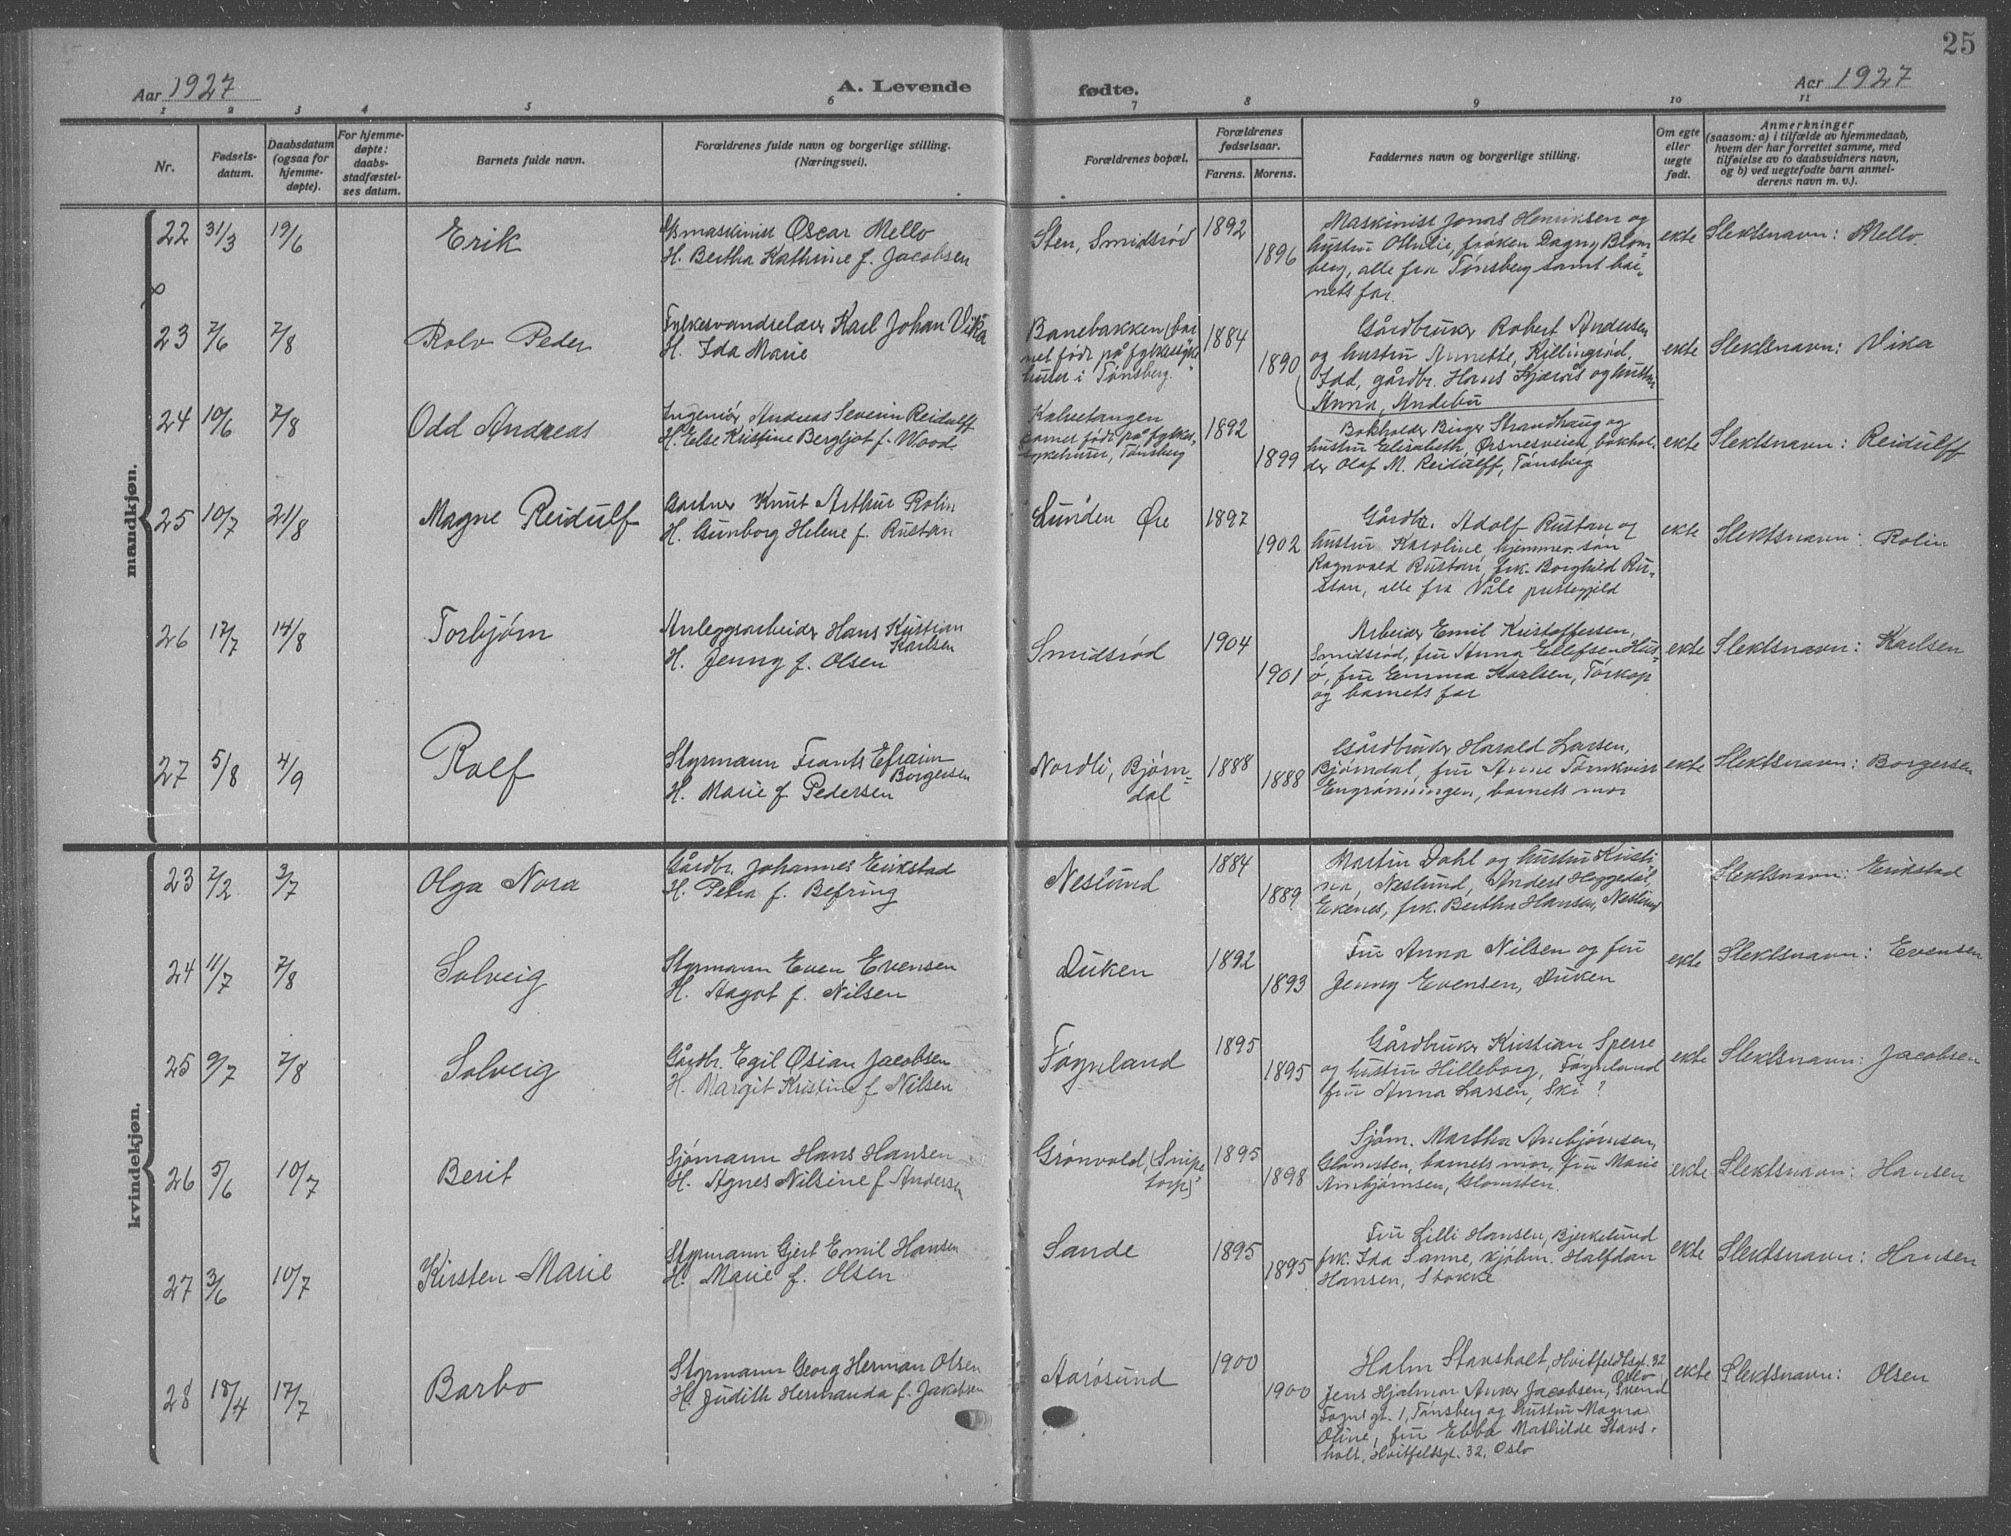 25
Aar 1927 A. Levende fødte. Aar 1927
1 2 3 4 5 6 7 8 9 10 11
Nr. | Fødsels-datum. | Daabsdatum (ogsaa for hjemme-døpte). | For hjemme-døpte: daabs-stadfæstel-ses datum. | Barnets fulde navn. | Forældrenes fulde navn og borgerlige stilling. (Næringsvei). | Forældrenes bopæl. | Forældrenes fødselsaar. Farens. Morens. | Faddernes navn og borgerlige stilling. | Om egte eller uegte født. | Anmerkninger (saasom: a) i tilfælde av hjemmedaab, hvem der har forrettet samme, med tilføielse av to daabsvidners navn, og b) ved uegtefødte barn anmel-derens navn m. v.).
mandkjøn.
22 31/3 19/6 Erik
maskinist Oscar Mello
H. Bertha Kathrine f. Jacobsen
Sten, Smidsrød 1892 1896
Maskinist Jonas Henriksen og
hustru Othilie, frøken Dagny Blom-
berg, alle fra Tønsberg samt bar-
nets far.
ekte Slektsnavn: Mello.
23 7/6 7/8 Rolv Peder
Fylkesvandrelærer Karl Johan Vika
H. Ida Marie
Banebakken (bar
net født på fylkessyke
huset i Tønsberg.
1884 1890
Gårdbruker Robert Andersen
og hustru Annette, Killingrød,
Idd, gårdbr. Hans Kjærås og hustru
Anna, Andebu
ekte Slektsnavn: Vika
24 10/6 7/8 Odd Andreas
Ingeniør Andreas Severin Reidulff
H. Else Kristine Bergljot f. Wood.
Kalvetangen
barnet født på fylkes-
sykehuset, Tønsberg
1892 1899
Bokholder Birger Strandhaug og
hustru Elisabeth, Ørsnesveien, bokhol-
der Olaf M. Reidulff, Tønsberg
ekte Slektsnavn: Reidulff
25 10/7 21/8 Magne Reidulf
Gartner Knut Arthur Rolin
H. Gunborg Helene f. Rustan
Lunden Øre 1897 1902
Gårdbr. Adolf Rustan og
hustru Karoline, hjemmev. søn
Ragnvald Rustan, frk. Borghild Ru-
stan, alle fra Våle prestegjeld
ekte Slektsnavn: Rolin
26 17/7 14/8 Torbjørn
Anleggsarbeider Hans Kristian
Karlsen
H. Jenny f. Olsen
Smidsrød 1904 1901
Arbeider Emil Kristoffersen,
Smidsrød, fru Anna Ellefsen Hus-
ø, fru Emma Karlsen, Torkop
og barnets far
ekte Slektsnavn: Karlsen
27 5/8 4/9 Rolf
Styrmann Frants Efraim
Borgersen
H. Marie f. Pedersen
Nordli, Bjørn-
dal
1888 1888
Gårdbruker Harald Larsen,
Bjørndal, fru Anne Tørnkvist
Engrønningen, barnets mor
ekte Slektsnavn: Borgersen
kvindekjøn.
23 2/2 3/7 Olga Nora
Gårdbr. Johannes Erikstad
H. Petra f. Befring
Neslund 1884 1889
Martin Dahl og hustru Kristi
na, Neslund, Anders Heggedal,
Ekenes, frk. Bertha Hansen, Neslund
Slektsnavn: Erikstad
24 11/7 7/8 Solveig
Styrmann Even Evensen
H. Aagot f. Nilsen
Duken 1892 1893
Fru Anna Nilsen og fru
Jenny Evensen, Duken
ekte Slektsnavn: Evensen
25 9/7 7/8 Solveig
Gårdbr. Egil Osian Jacobsen
H. Margit Kristine f. Nilsen
Føynland 1895 1895
Gårdbruker Kristian Sperre
og hustru Hilleborg, Føynland
fru Anna Larsen, Ski ?
ekte Slektsnavn: Jacobsen
26 5/6 10/7 Berit
Sjømann Hans Hansen
H. Agnes Nilsine f. Andersen
Grønvold, (Snipe
torp)
1895 1898
Sjøm. Martha Arnbjørnsen,
Glomsten, barnets mor, fru Marie
Arnbjørnsen, Glomsten.
ekte Slektsnavn: Hansen
27 3/6 10/7 Kirsten Marie
Styrmann Gjert Emil Hansen
H. Marie f. Olsen
Sande 1895 1895
Fru Lilli Hansen, Bjerkelund
frk. Ida Sanne, kjøbm. Halfdan
Hansen, Stokke
ekte Slektsnavn: Hansen
28 18/4 17/7 Barbo
Styrmann Georg Herman Olsen
H. Judith Hermanda f. Jakobsen
Aarøsund 1900 1900
Halm Stavsholt, Hvitfeldtsgt. 32
Oslo
Jens Hjalmar Anker Jacobsen, Svend
Foyns gt. 1, Tønsberg og hustru Magna
Oline, fru Ebba Mathilde Stavs-
holt, Hvitfeldtsgt. 32, Oslo
ekte Slektsnavn: Olsen